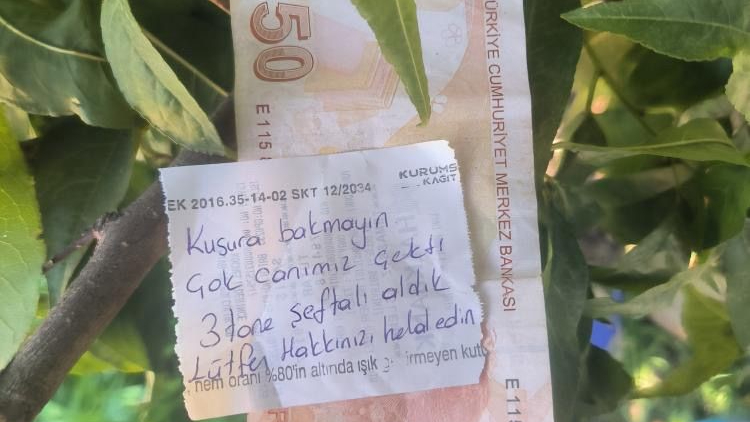 50
E 115
TÜRKİYE CUMHURİYET MERKEZ BANKASI
EK 2016.35-14-02 SKT 12/2034
KURUMS
KAĞIT
Kusura bakmayın
Çok canımız çekti
3 tane şeftali aldık
Lütfen Hakkınızı helal edin
nem oranı %80'in altında ışık geçirmeyen kutu
E 115